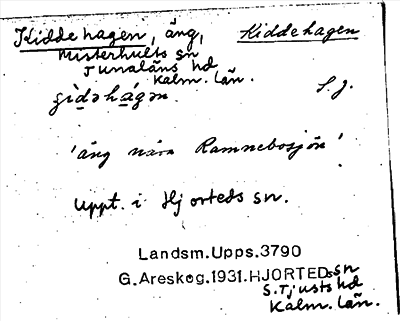 Kiddehagen, äng, Kiddehagen
Misterhults sn
Tunaläns hd
Kalm. län.
g̀idəhágən. S. J.
'äng nära Ramnebosjön'
Uppt. i Hjorteds sn.
Landsm.Upps.3790
G.Areskog.1931.HJORTEDs sn
S.Tjusts hd
Kalm. län.